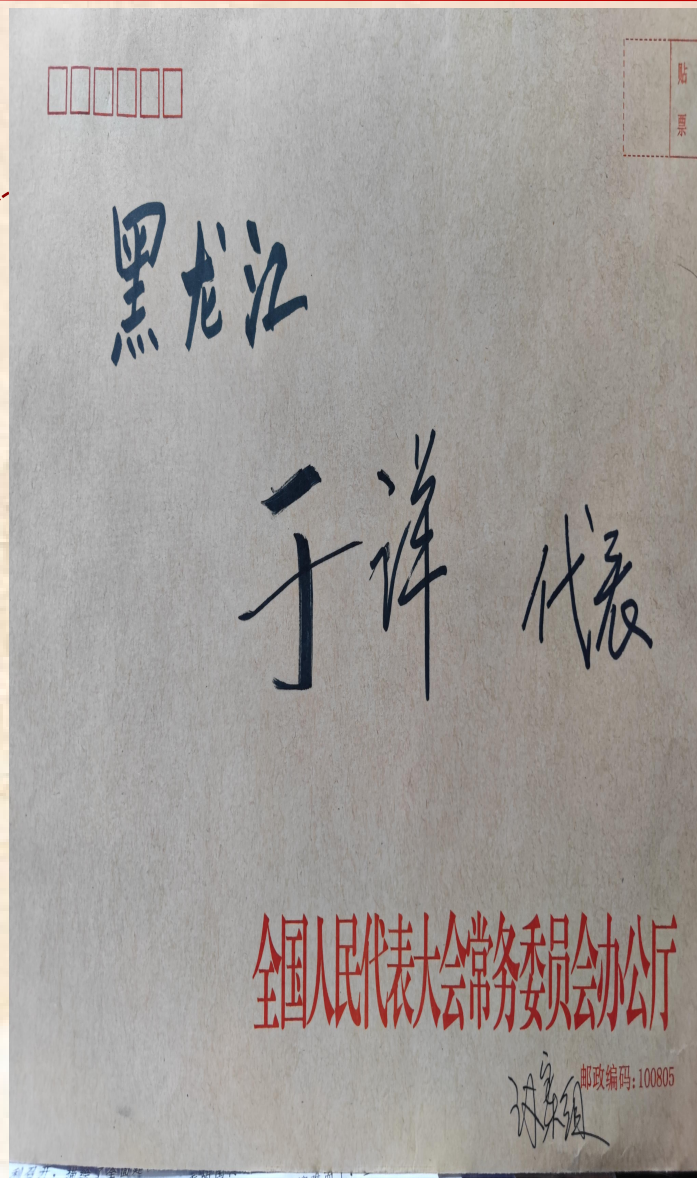 贴
票
黑龙江
于详 代表
全国人民代表大会常务委员会办公厅
邮政编码:100805
议案组